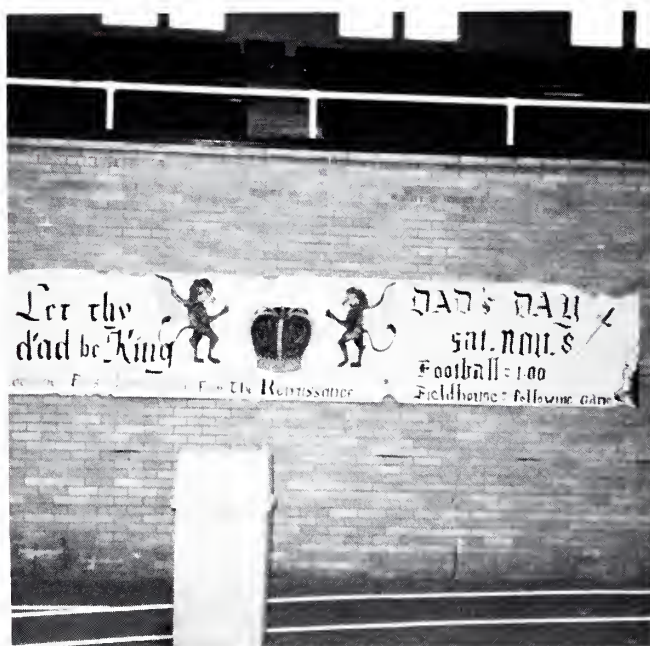 Let thy
dad be King
the Renaissance
DAD'S DAY
Sat. Nov. 8
Football: 1:00
Fieldhouse: following game